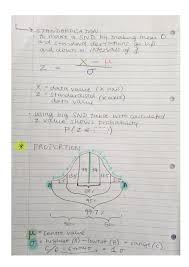 STANDARDISATION
to make a SND by making mean 0
and standard deviations go up
and down in intervals of 1
Z = X - μ
σ
X = data value (x axis)
Z = standardised (x axis)
data value
using big SND table with calculated
Z value shows probability
P(Z ≤ ...)
PROPORTION
68%
95%
99.7%
μ = centre value
σ = highest (B) - lowest (A) = range (C)